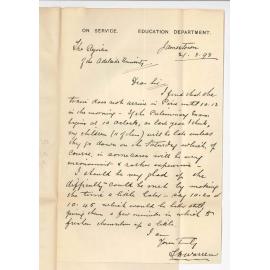 ON SERVICE. EDUCATION DEPARTMENT.
Jamestown
21.8.98
The Registrar
of the Adelaide University
Dear Sir,
I find that the
train does not arrive in Pirie until 10.12
in the morning - If the Preliminary Exam
begins at 10 o'clock, as last year I think,
my children (of them) will be late unless
they go down on the Saturday which, of
course, in some cases will be very
inconvenient & rather expensive.
I should be very glad if the
difficulty could be met by making
the time a little later - say 10.30 or
10.45, which would be better still,
giving them a few minutes in which to
freshen themselves up a little.
I am
Yours Truly
Warren